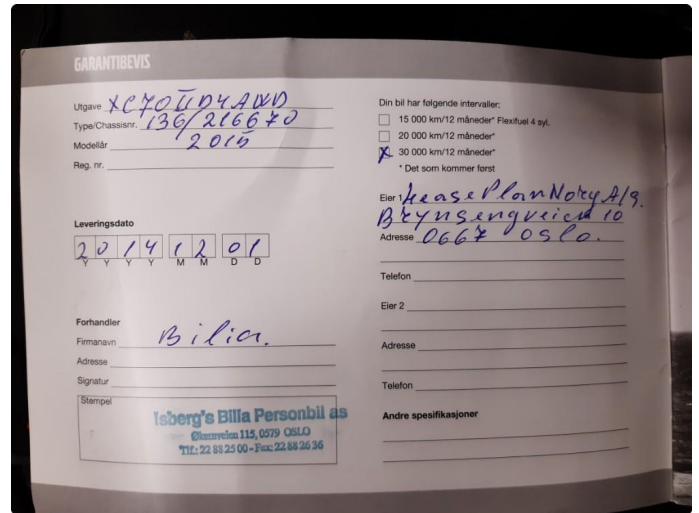 GARANTIBEVIS
Utgave XC70 II D4 AWD
Type/Chassisnr. 136/216670
Modellår 2015
Reg. nr.
Leveringsdato
2 0 1 4 1 2 0 1
Y Y Y Y M M D D
Forhandler
Firmanavn Bilia.
Adresse
Signatur
Stempel
Isberg's Bilia Personbil as
115, 0579 OSLO
Tlf.: 22 88 25 00 - Fax: 22 88 26 36
Din bil har følgende intervaller:
15 000 km/12 måneder* Flexifuel 4 syl.
20 000 km/12 måneder*
X 30 000 km/12 måneder*
* Det som kommer først
Eier 1 LeasePlan Norg A/S.
Brynsengveien 10
Adresse 0667 Oslo.
Telefon
Eier 2
Adresse
Telefon
Andre spesifikasjoner